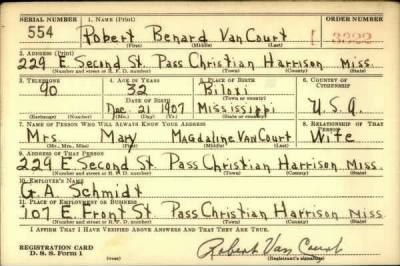 SERIAL NUMBER 1. NAME (Print) ORDER NUMBER
554 Robert Benard VanCourt
(First) (Middle) (Last)
2. ADDRESS (Print)
229 E Second St. Pass Christian Harrison Miss.
(Number and street or R. F. D. number) (Town) (County) (State)
3. TELEPHONE 4. AGE IN YEARS 5. PLACE OF BIRTH 6. COUNTRY OF CITIZENSHIP
90 32 Biloxi
DATE OF BIRTH (Town or county)
Dec. 21 1907 Mississippi U.S.A.
(Exchange) (Number) (Mo.) (Day) (Yr.) (State or country)
7. NAME OF PERSON WHO WILL ALWAYS KNOW YOUR ADDRESS 8. RELATIONSHIP OF THAT PERSON
Mrs. Mary Magdaline VanCourt Wife
(Mr., Mrs., Miss) (First) (Middle) (Last)
9. ADDRESS OF THAT PERSON
229 E Second St. Pass Christian Harrison Miss.
(Number and street or R. F. D. number) (Town) (County) (State)
10. EMPLOYER'S NAME
G.A. Schmidt
11. PLACE OF EMPLOYMENT OR BUSINESS
107 E Front St. Pass Christian Harrison Miss
(Number and street or R. F. D. number) (Town) (County) (State)
I AFFIRM THAT I HAVE VERIFIED ABOVE ANSWERS AND THAT THEY ARE TRUE.
REGISTRATION CARD
D. S. S. Form 1 Robert Van Court
(Registrant's signature)